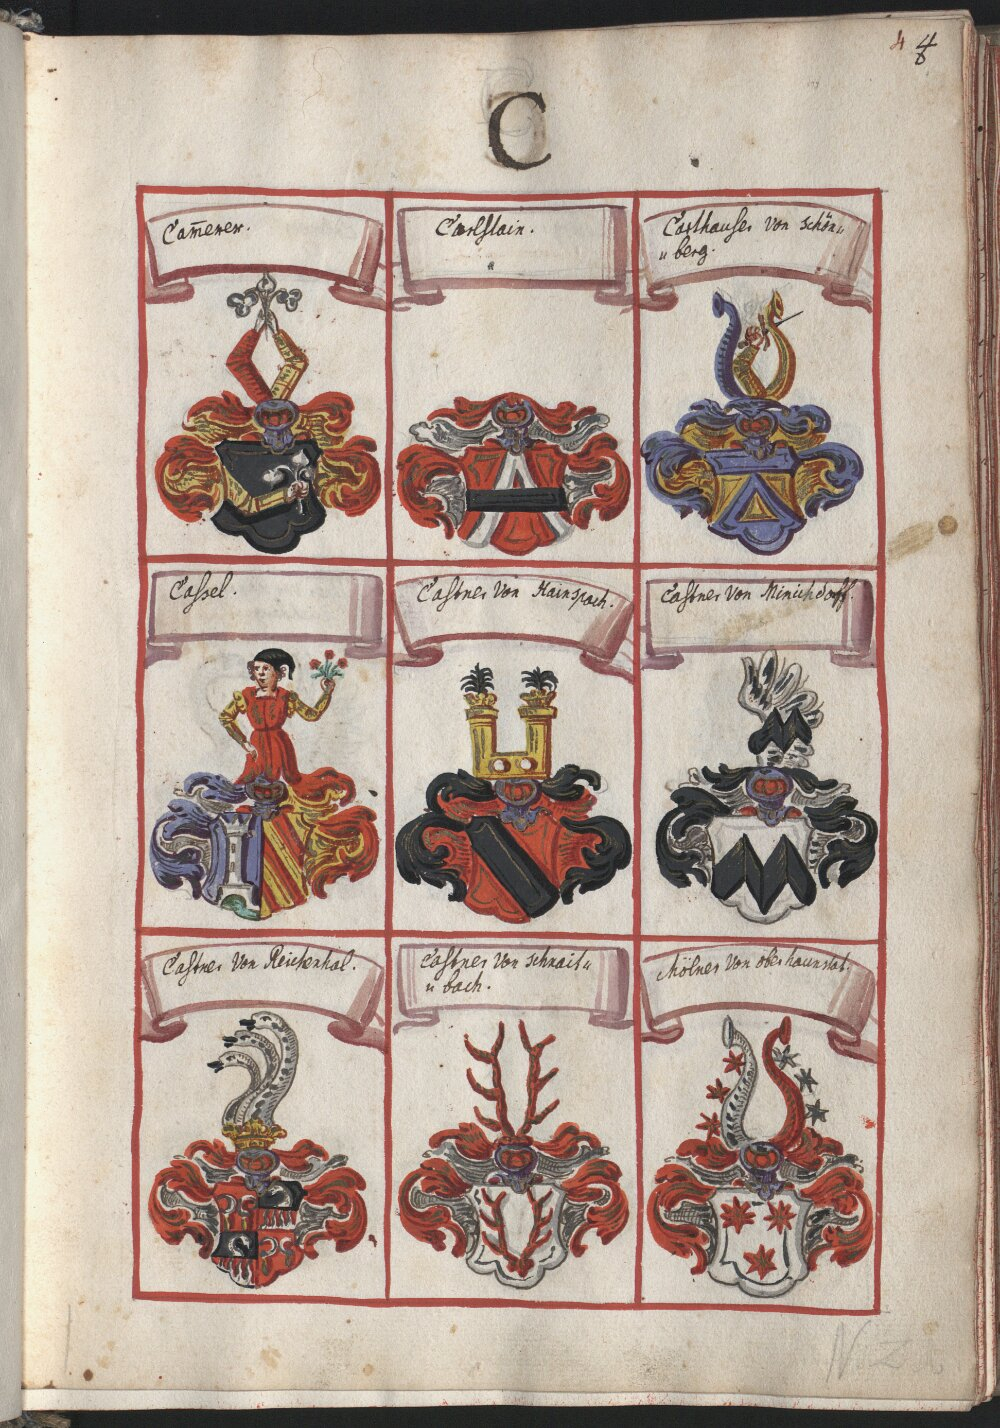 4 4
C
Cam̅erer.
Carlstain.
Carlhauser von schön„
„ berg.
Cassel.
Castner von Hainspach.
Castner von Minichdorff.
Castner von Reichenhal.
Castner von schnait„
„ bach.
Cölner von oberhaunstat.